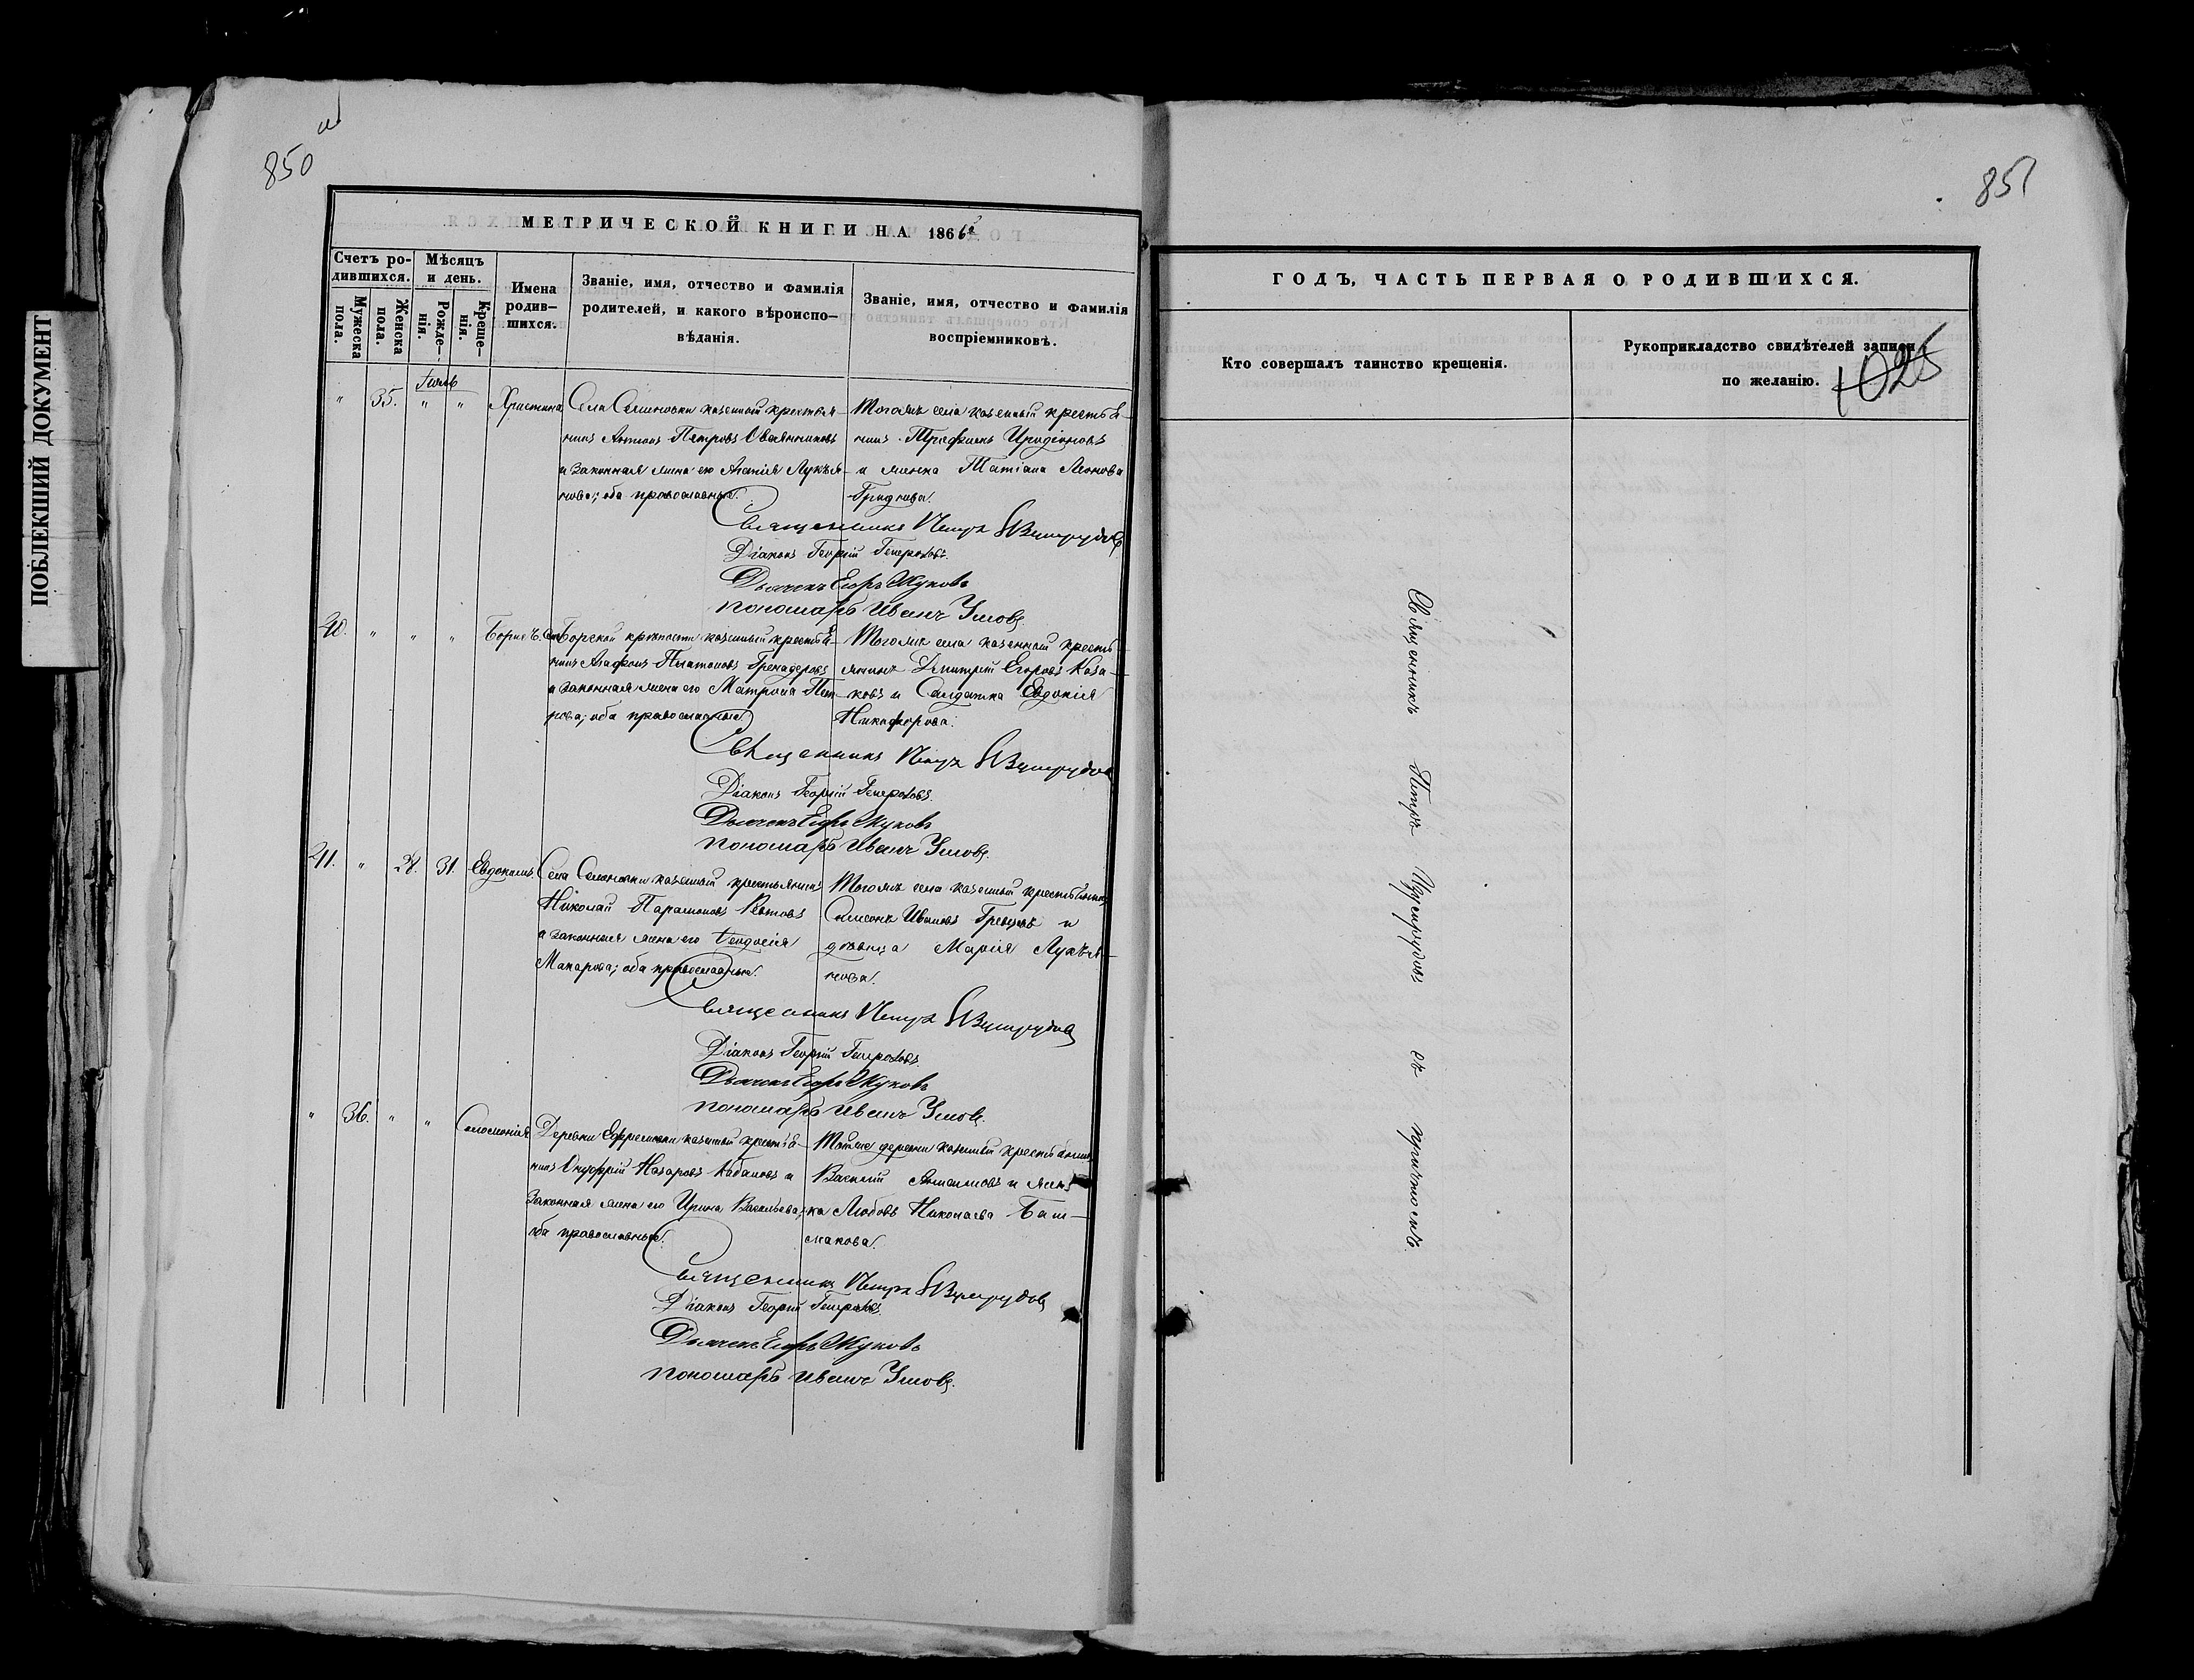 ПОБЛЕКШИЙ ДОКУМЕНТ
850
МЕТРИЧЕСКОЙ КНИГИ НА 1866й
Счетъ ро-
дившихся.
Мужеска
пола.
Женска
пола.
Мѣсяцъ
и день.
Рожде-
нія.
Креще-
нія.
Имена
родив-
шихся.
Званіе, имя, отчество и фамилія
родителей, и какого вѣроиспо-
вѣданія.
Званіе, имя, отчество и фамилія
воспріемниковъ.
Іюль
" 35. " " Христина
казенный крестья-
нинъ Антонъ Петровъ Овчинниковъ
и законная жена его Агапія Лукья-
нова; оба православные.
Тогожъ села казенный крестья-
нинъ Трифонъ Иродіоновъ
и женка Татіана Леонова
Гриднева.
Священникъ Петръ
Діаконъ Георгій
Дьячекъ Егоръ Жуковъ
Пономарь Иванъ Умовъ.
40. " " " Борисъ.
Борской крѣпости казенный крестья-
нинъ Агафонъ Платоновъ Гренадеровъ
и законная жена его Матрона Пет-
рова; оба православные.
Тогожъ села казенный кресть-
янинъ Димитрий Егоровъ Каза-
ковъ и Солдатка Евдокія
Никифорова.
Священникъ Петръ
Діаконъ Георгій
Дьячекъ Егоръ Жуковъ
Пономарь Иванъ Умовъ.
41. " 28. 31. Евдокимъ.
Села казенный крестьянинъ
Николай Парамоновъ
и законная жена его Феодосія
Макарова; оба православные.
Тогожъ села казенный крестьянинъ
Симеонъ Ивановъ и
дѣвица Марія Лукья-
нова.
Священникъ Петръ
Діаконъ Георгій
Дьячекъ Егоръ Жуковъ
Пономарь Иванъ Умовъ.
" 36. " " Соломонія
Деревни Ефремовки казенный крестья-
нинъ Онуфрій Назаровъ Кабановъ и
законная жена его Ирина Васильева;
оба православные.
Тойже деревни казенный крестьянинъ
Василий и жен-
ка Любовь Николаева Баш-
макова.
Священникъ Петръ
Діаконъ Георгій
Дьячекъ Егоръ Жуковъ
Пономарь Иванъ Умовъ.
851
ГОДЪ, ЧАСТЬ ПЕРВАЯ О РОДИВШИХСЯ.
Кто совершалъ таинство крещенія.
Рукоприкладство свидѣтелей записи
по желанію.
Священникъ Петръ съ причтомъ.